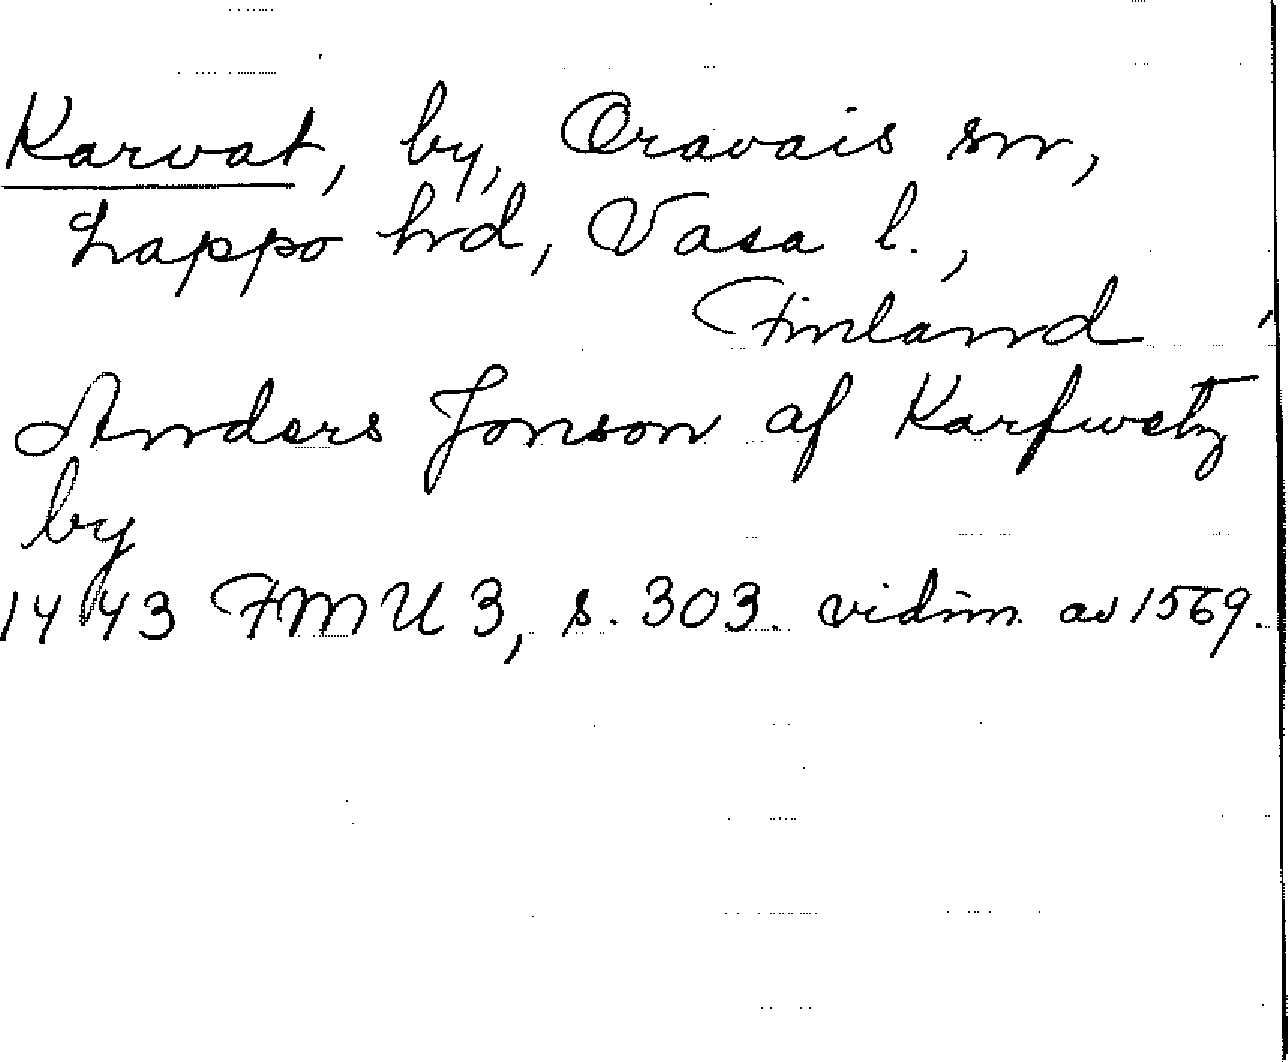 Karvat, by, Oravais sn,
Lappo hrd, Vasa l.,
Finland
Anders Jonson af Karfwetz
by
1443 FMU 3, s. 303. vidim. av 1569.